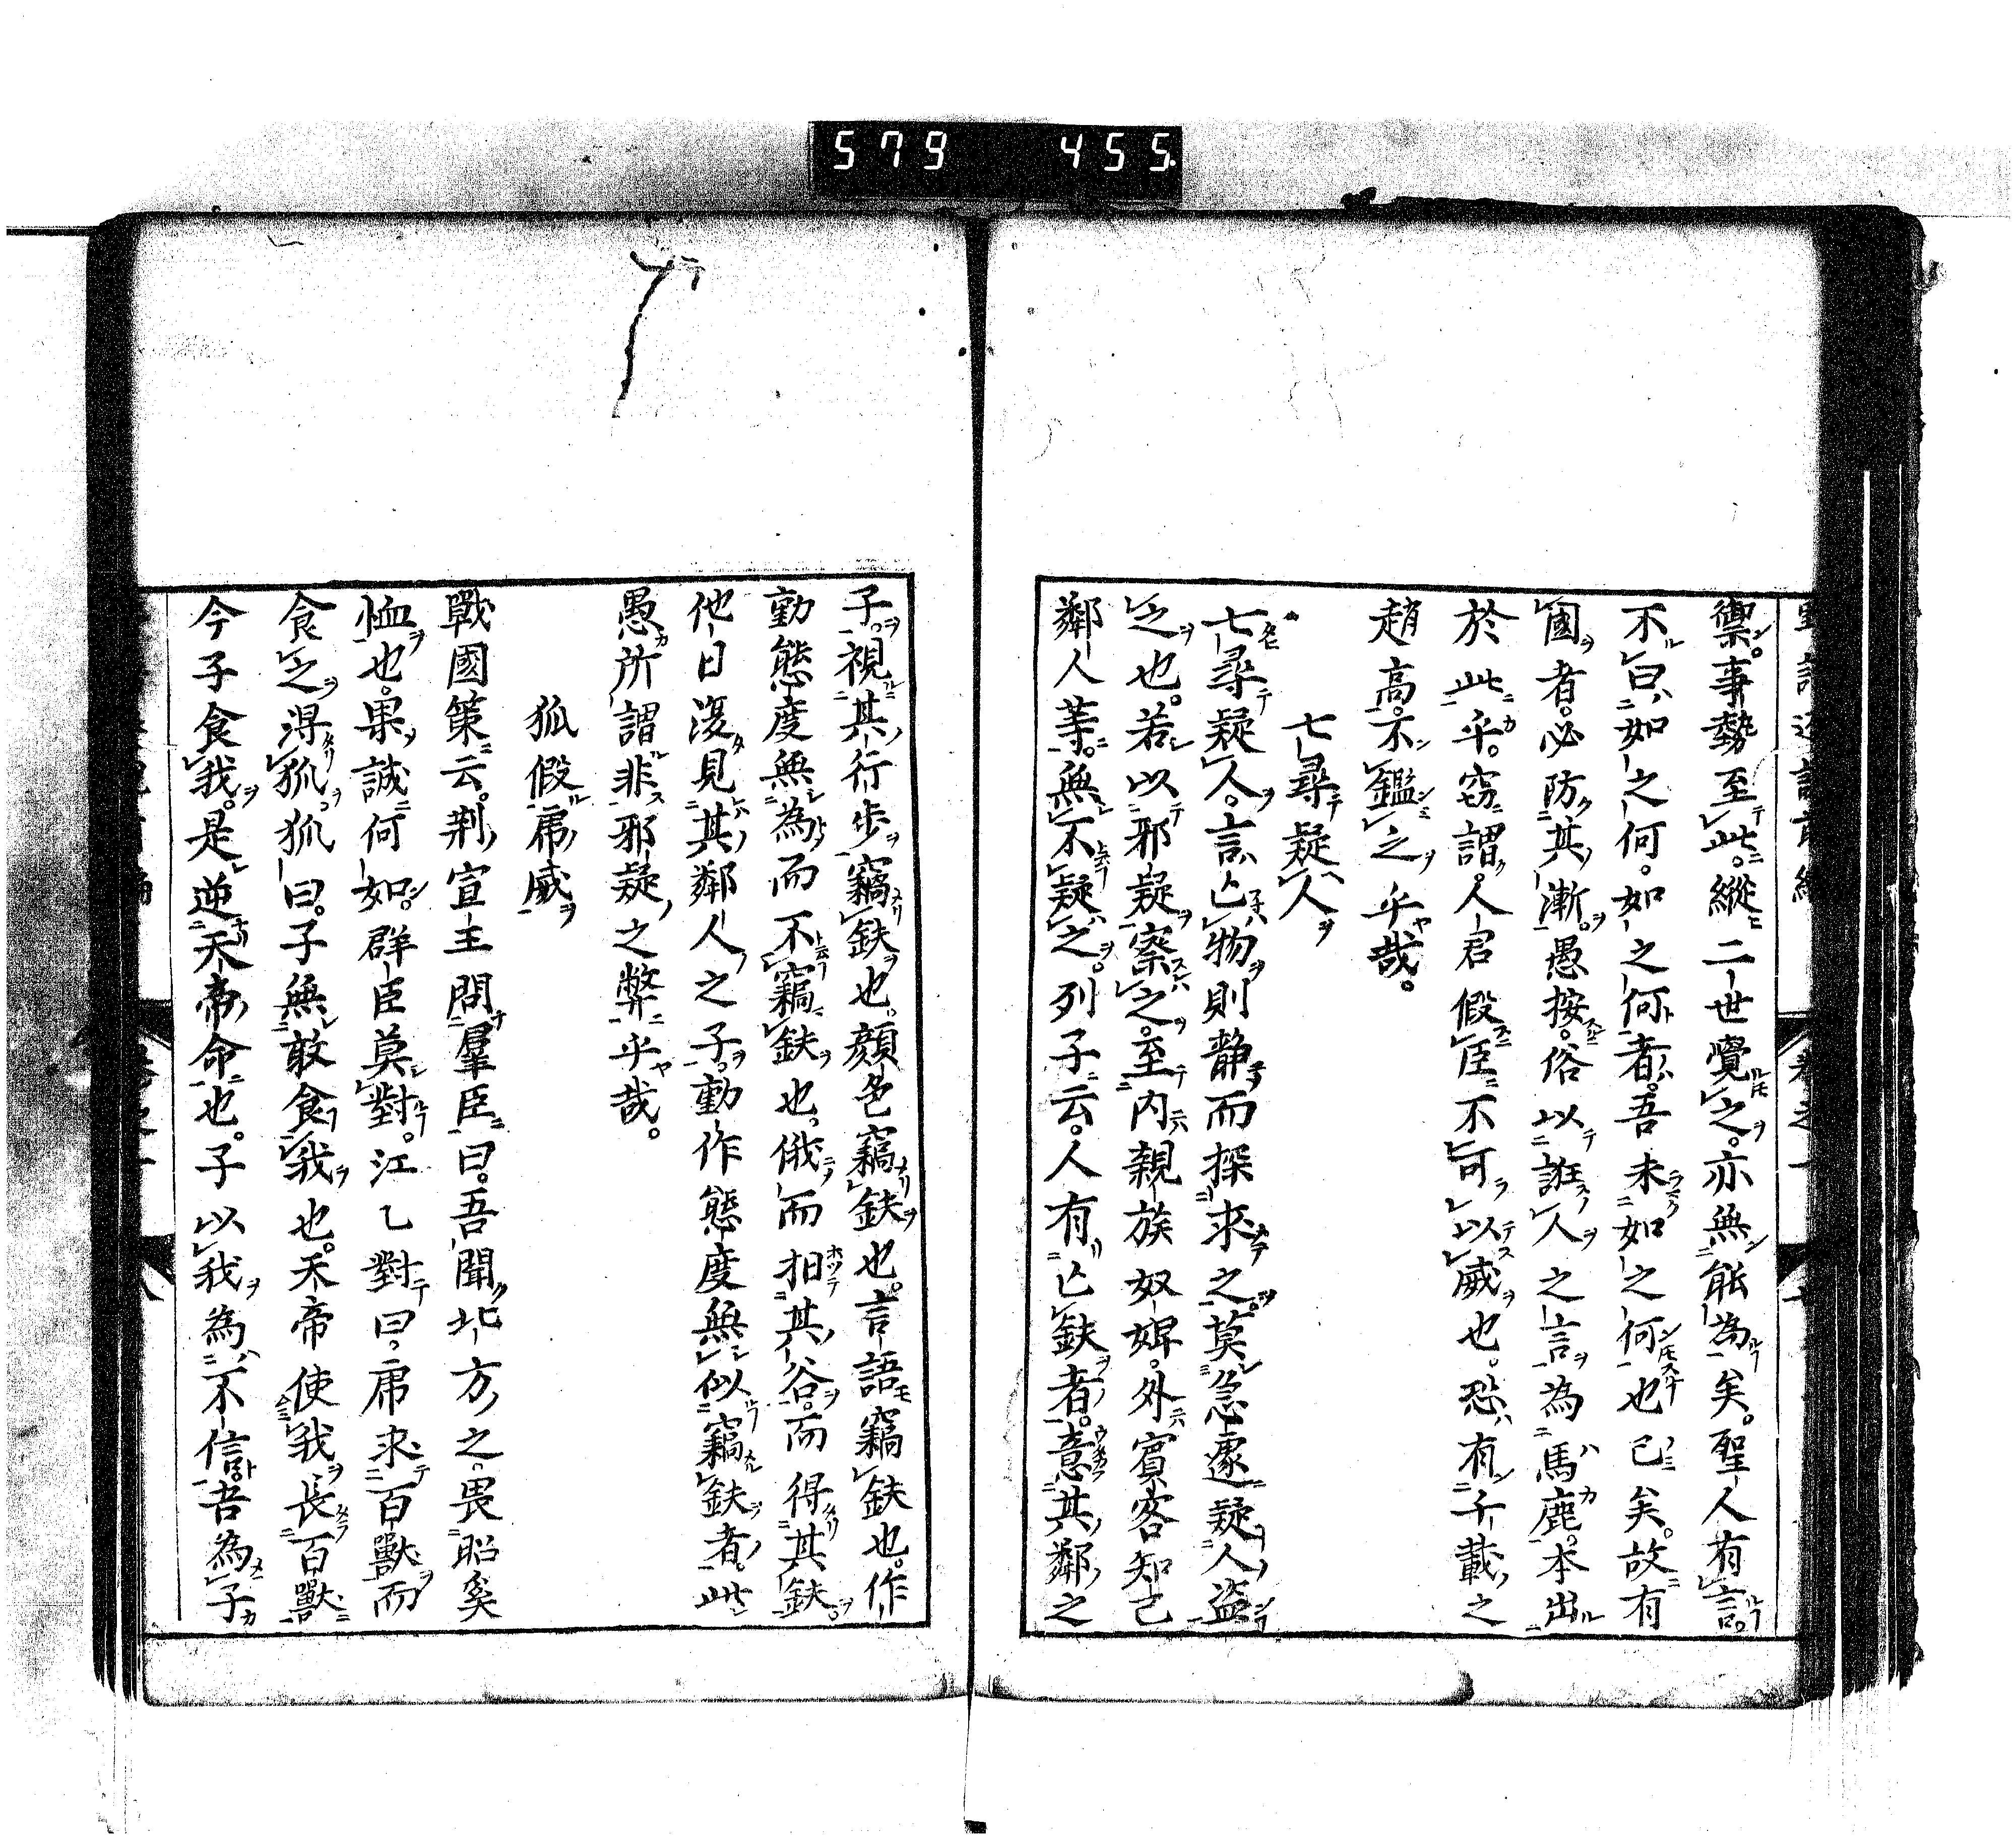 579 455
禦。事勢至此。縱二世覺之。亦無能為矣。聖人有言。
不曰如之何。如之何者。吾未如之何也已矣。故有
國者。必防其漸。愚按。俗以誑人之言為馬鹿。本出
於此乎。窃謂。人君假臣不可以威也。恐有千載之
趙高。不鑑之乎哉。
七尋疑人
七尋疑人。言亡物則静而探求之。莫急遽疑人盗
之也。若以邪疑察之。至内親族奴婢。外賓客知己
鄰人等。無不疑之。列子云。人有亡鈇者。意其鄰之
子。視其行歩竊鈇也。顔色竊鈇也。言語竊鈇也。作
動態度無為而不竊鈇也。俄而抇其谷。而得其鈇。
他日復見其鄰人之子。動作態度無似竊鈇者。此
愚所謂非邪疑之弊乎哉。
狐假虎威
戰國策云。荆宣王問羣臣曰。吾聞北方之畏昭奚
恤也。果誠何如。群臣莫對。江乙對曰。虎求百獸而
食之得狐。狐曰。子無敢食我也。天帝使我長百獸
今子食我。是逆天帝命也。子以我為不信。吾為子